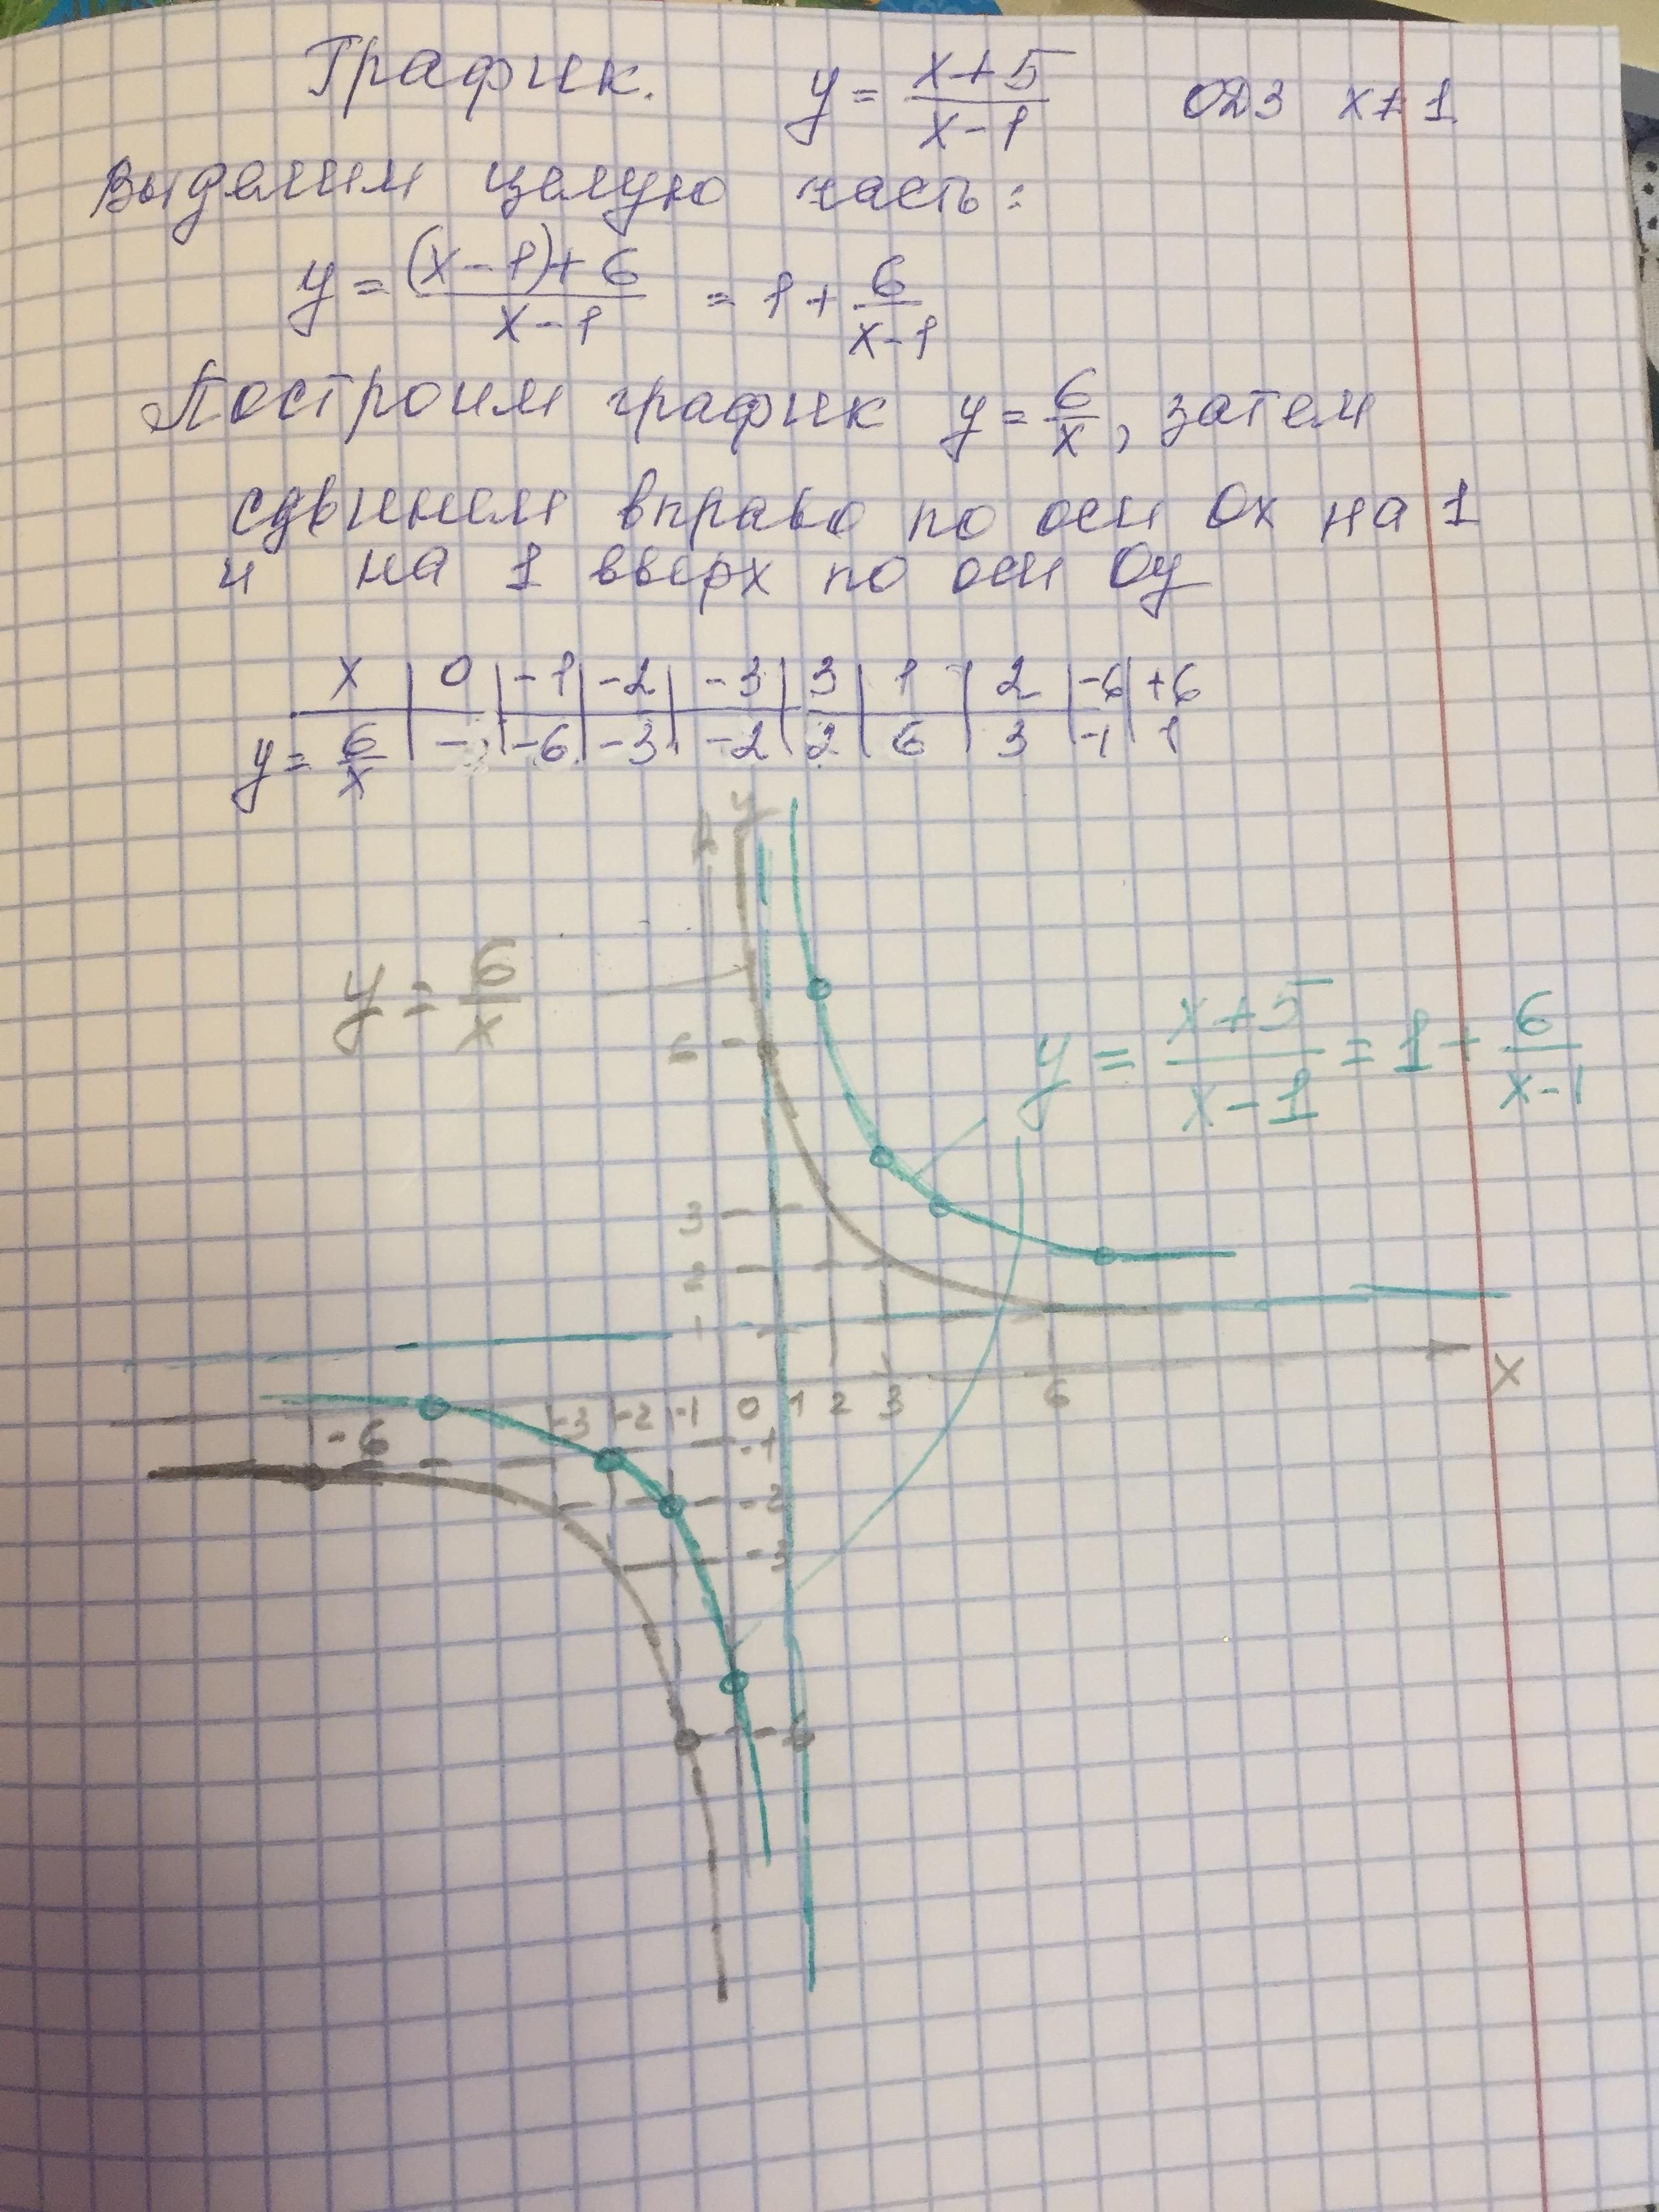 График. y = (x+5)/(x-1) ОДЗ x≠1.
Выделим целую часть:
y = ((x-1)+6)/(x-1) = 1 + 6/(x-1)
Построим график y = 6/x, затем
сдвинем вправо по оси Ox на 1
и на 1 вверх по оси Oy
x | 0 | -1 | -2 | -3 | 3 | 1 | 2 | -6 | +6
y = 6/x | - | -6 | -3 | -2 | 2 | 6 | 3 | -1 | 1
y
y = 6/x
y = (x+5)/(x-1) = 1 + 6/(x-1)
6
3
2
1
x
-6 -3 -2 -1 0 1 2 3 6
-1
-2
-3
-6